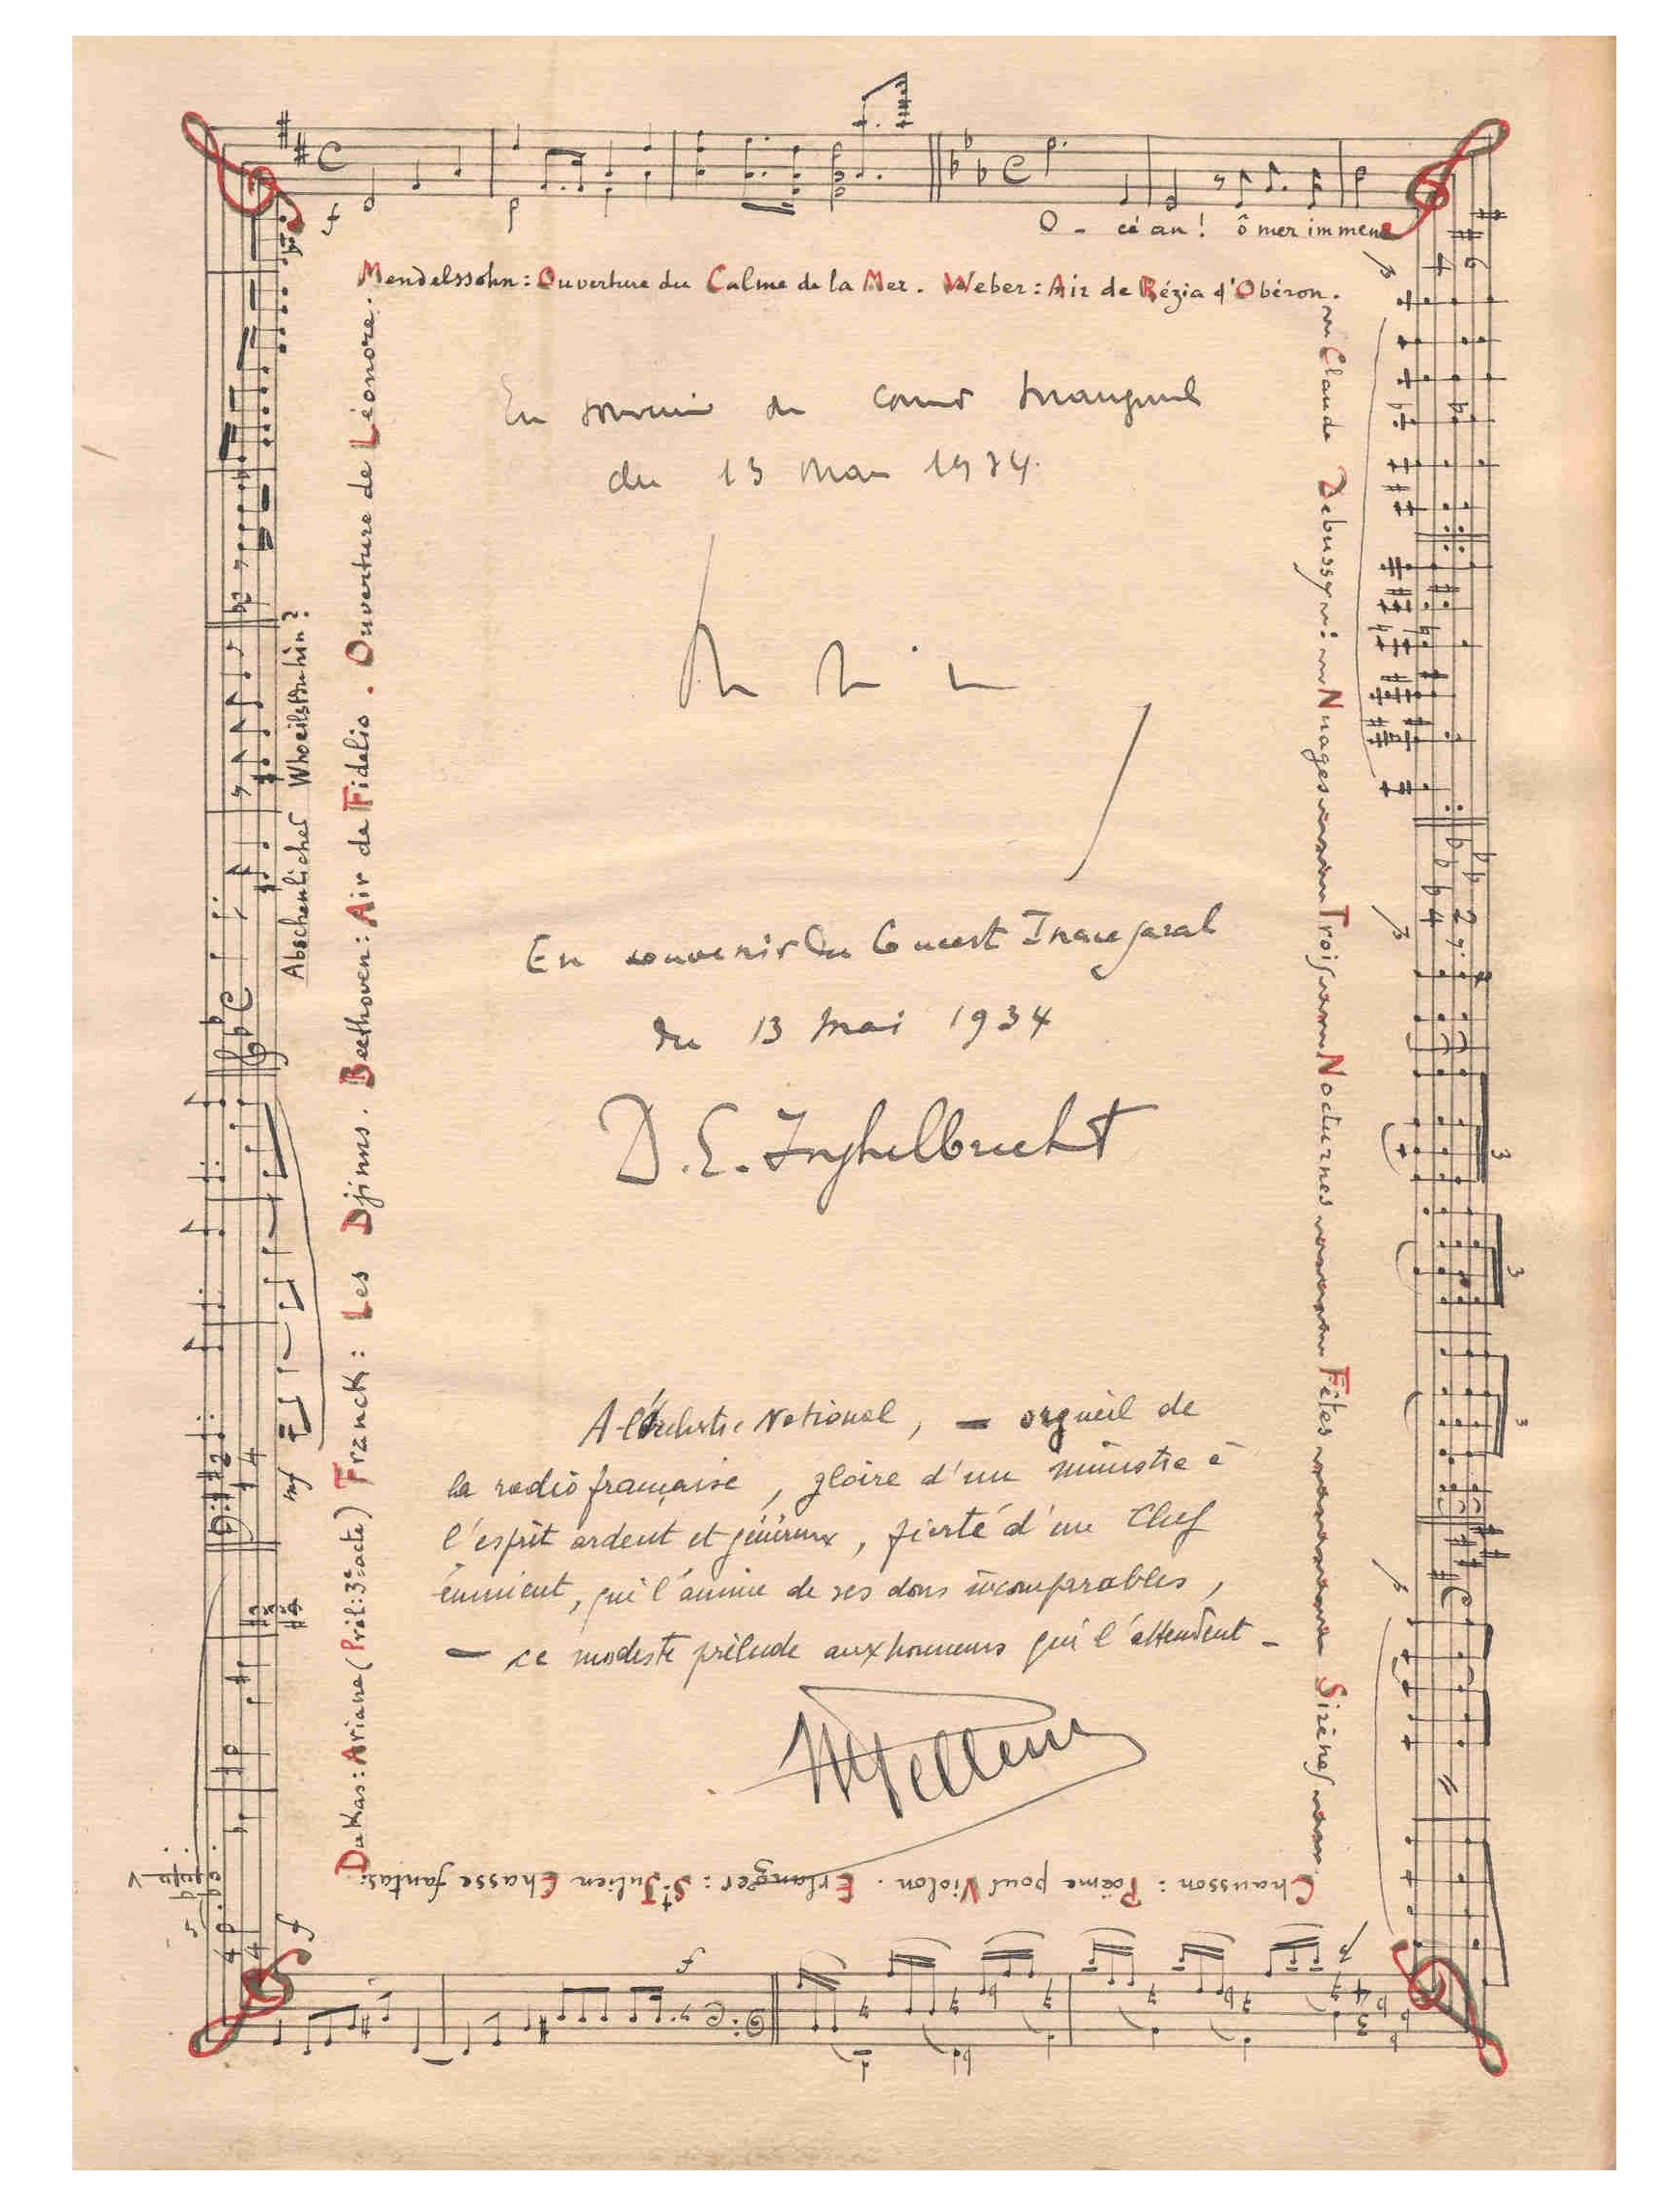 O - cé an ! ô mer im mense
Mendelssohn : Ouverture du Calme de la Mer . Weber : Air de Rézia d'Obéron .
Claude Debussy : Nuages Trois Nocturnes Fêtes Sirènes
Chausson : Poème pour Violon . Erlanger : St Julien Chasse fantas :
Dukas : Ariane ( Prél : 3e acte ) Franck : Les Djinns . Beethoven : Air de Fidelio . Ouverture de Léonore .
Abscheulicher Wo eilst du hin ?
En souvenir du Concert Inaugural
du 13 Mai 1934.
En souvenir du Concert Inaugural
du 13 Mai 1934
D. E. Inghelbrecht
A l'Orchestre National , — orgueil de
la radio française , gloire d'un ministre à
l'esprit ardent et généreux , fierté d'un Chef
éminent , qui l'anime de ses dons incomparables ,
— ce modeste prélude aux honneurs qui l'attendent -